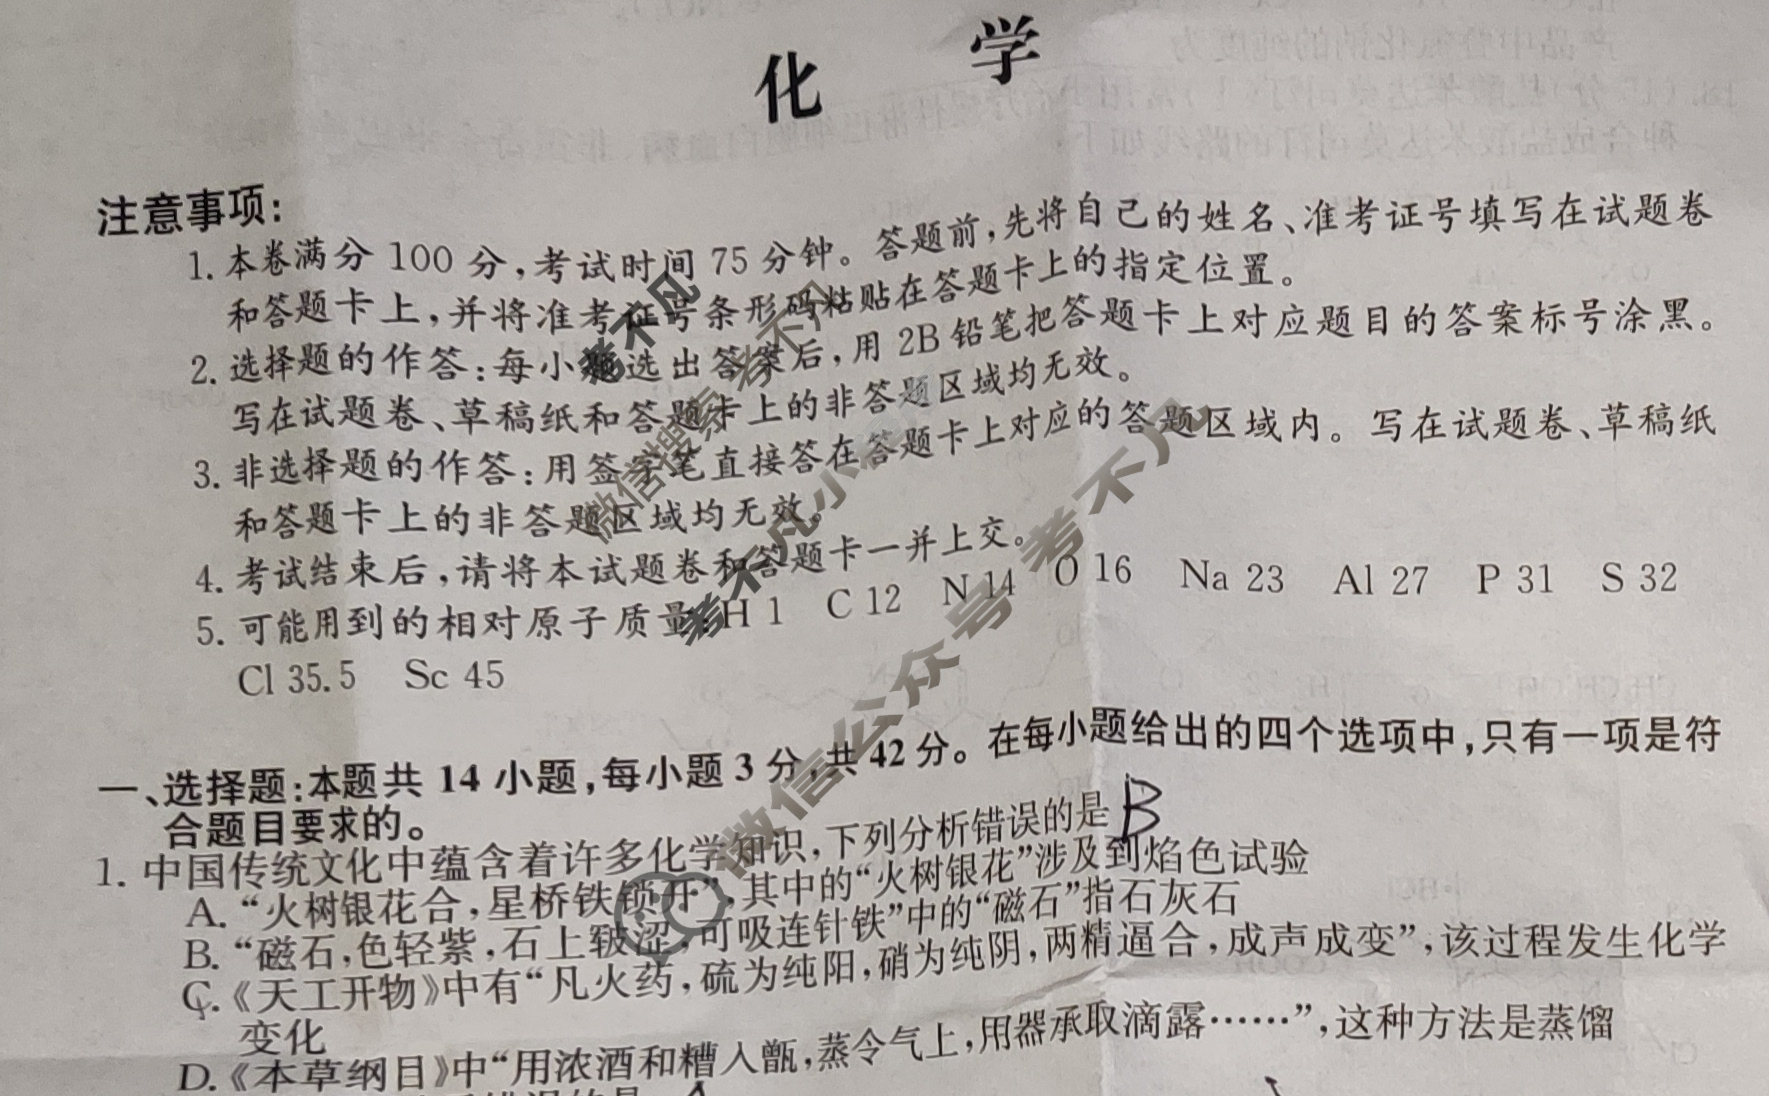 化 学
注意事项：
1. 本卷满分 100 分，考试时间 75 分钟。答题前，先将自己的姓名、准考证号填写在试题卷
和答题卡上，并将准考证号条形码粘贴在答题卡上的指定位置。
2. 选择题的作答：每小题选出答案后，用 2B 铅笔把答题卡上对应题目的答案标号涂黑。
写在试题卷、草稿纸和答题卡上的非答题区域均无效。
3. 非选择题的作答：用签字笔直接答在答题卡上对应的答题区域内。写在试题卷、草稿纸
和答题卡上的非答题区域均无效。
4. 考试结束后，请将本试题卷和答题卡一并上交。
5. 可能用到的相对原子质量：H 1 C 12 N 14 O 16 Na 23 Al 27 P 31 S 32
Cl 35.5 Sc 45
一、选择题：本题共 14 小题，每小题 3 分，共 42 分。在每小题给出的四个选项中，只有一项是符
合题目要求的。
1. 中国传统文化中蕴含着许多化学知识，下列分析错误的是 B
A. “火树银花合，星桥铁锁开”，其中的“火树银花”涉及到焰色试验
B. “磁石，色轻紫，石上皲涩，可吸连针铁”中的“磁石”指石灰石
C.《天工开物》中有“凡火药，硫为纯阳，硝为纯阴，两精逼合，成声成变”，该过程发生化学
变化
D.《本草纲目》中“用浓酒和糟入甑，蒸令气上，用器承取滴露……”，这种方法是蒸馏
考不凡
微信搜索 考不凡
考不凡小
微信公众号 考不凡